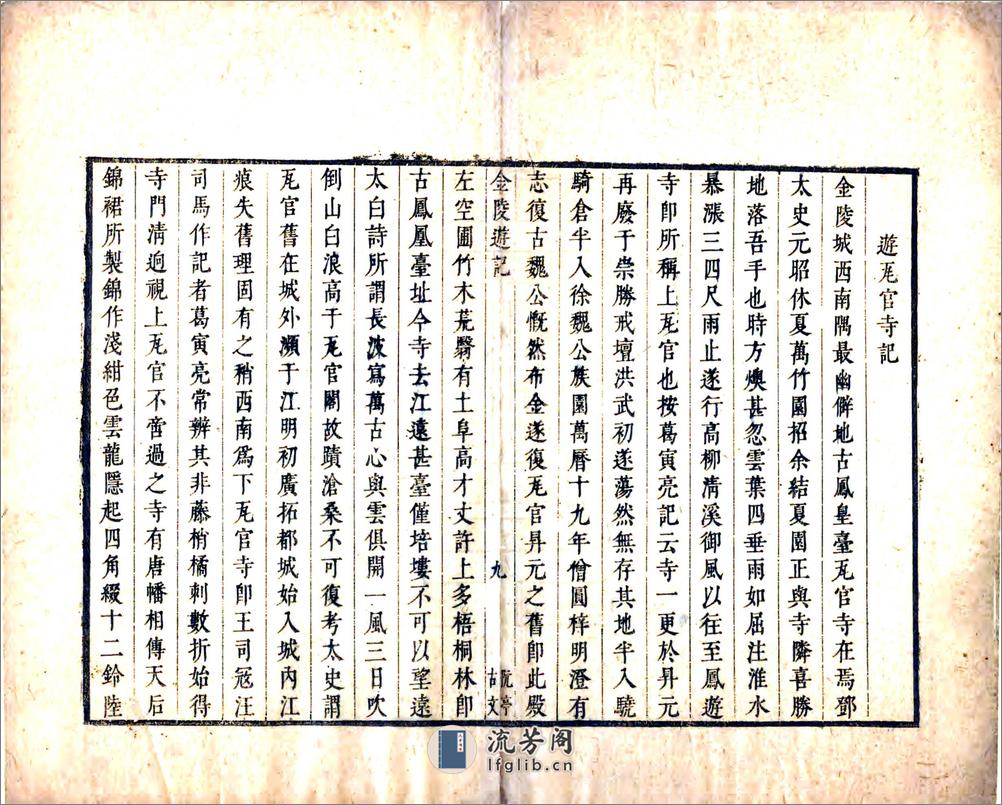 遊瓦官寺記
金陵城西南隅最幽僻地古鳳皇臺瓦官寺在焉鄧
太史元昭休夏萬竹園招余結夏園正與寺隣喜勝
地落吾手也時方燠甚忽雲葉四垂雨如屈注淮水
暴漲三四尺雨止遂行高柳清溪御風以往至鳳遊
寺卽所稱上瓦官也按葛寅亮記云寺一更於昇元
再廢于崇勝戒壇洪武初遂蕩然無存其地半入驍
騎倉半入徐魏公族園萬曆十九年僧圓梓明澄有
志復古魏公慨然布金遂復瓦官昇元之舊卽此殿
金陵遊記
九
阮亭
古文
左空圃竹木荒翳有土阜高才丈許上多梧桐林卽
古鳳凰臺址今寺去江遠甚臺僅培塿不可以望遠
太白詩所謂長波寫萬古心與雲俱開一風三日吹
倒山白浪高于瓦官閣故蹟滄桑不可復考太史謂
瓦官舊在城外瀕于江明初廣拓都城始入城內江
痕失舊理固有之稍西南爲下瓦官寺卽王司寇汪
司馬作記者葛寅亮常辨其非藤梢橘刺數折始得
寺門清迥視上瓦官不啻過之寺有唐幡相傳天后
錦裙所製錦作淺紺色雲龍隱起四角綴十二鈴陸
流芳阁
lfglib.cn